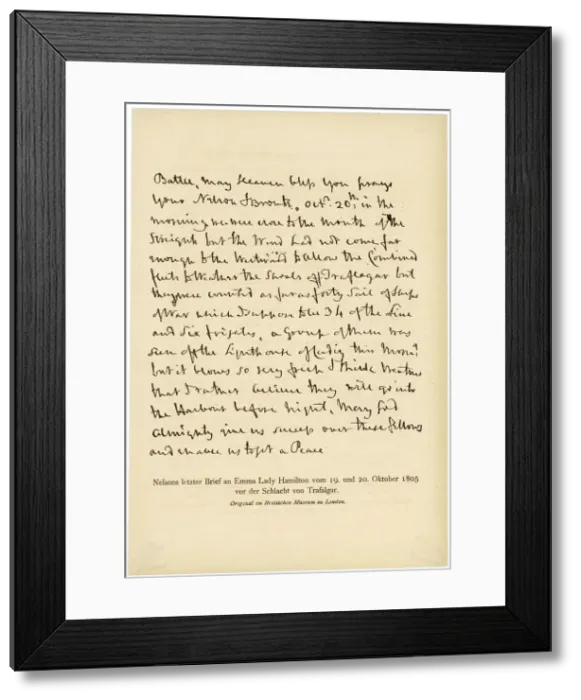 Battle, may Heaven bless you prays
your Nelson & Bronte. Octr. 20th, in the
morning we were close to the Mouth of the
Streights but the Wind had not come far
enough to the Westward to allow the Combined
fleets to Weather the Shoals off Traflagar but
they were counted as far as forty Sail of Ships
of War which I suppose to be 34 of the Line
and Six frigates, a Group of them was
seen off the Lighthouse of Cadiz this Morng
but it blows so very fresh I thinke weather
that I rather believe they will go into
the Harbour before night, May God
Almighty give us success over these fellows
and enable us to get a Peace
Nelsons letzter Brief an Emma Lady Hamilton vom 19. und 20. Oktober 1805
vor der Schlacht von Trafalgar.
Original im Britischen Museum zu London.